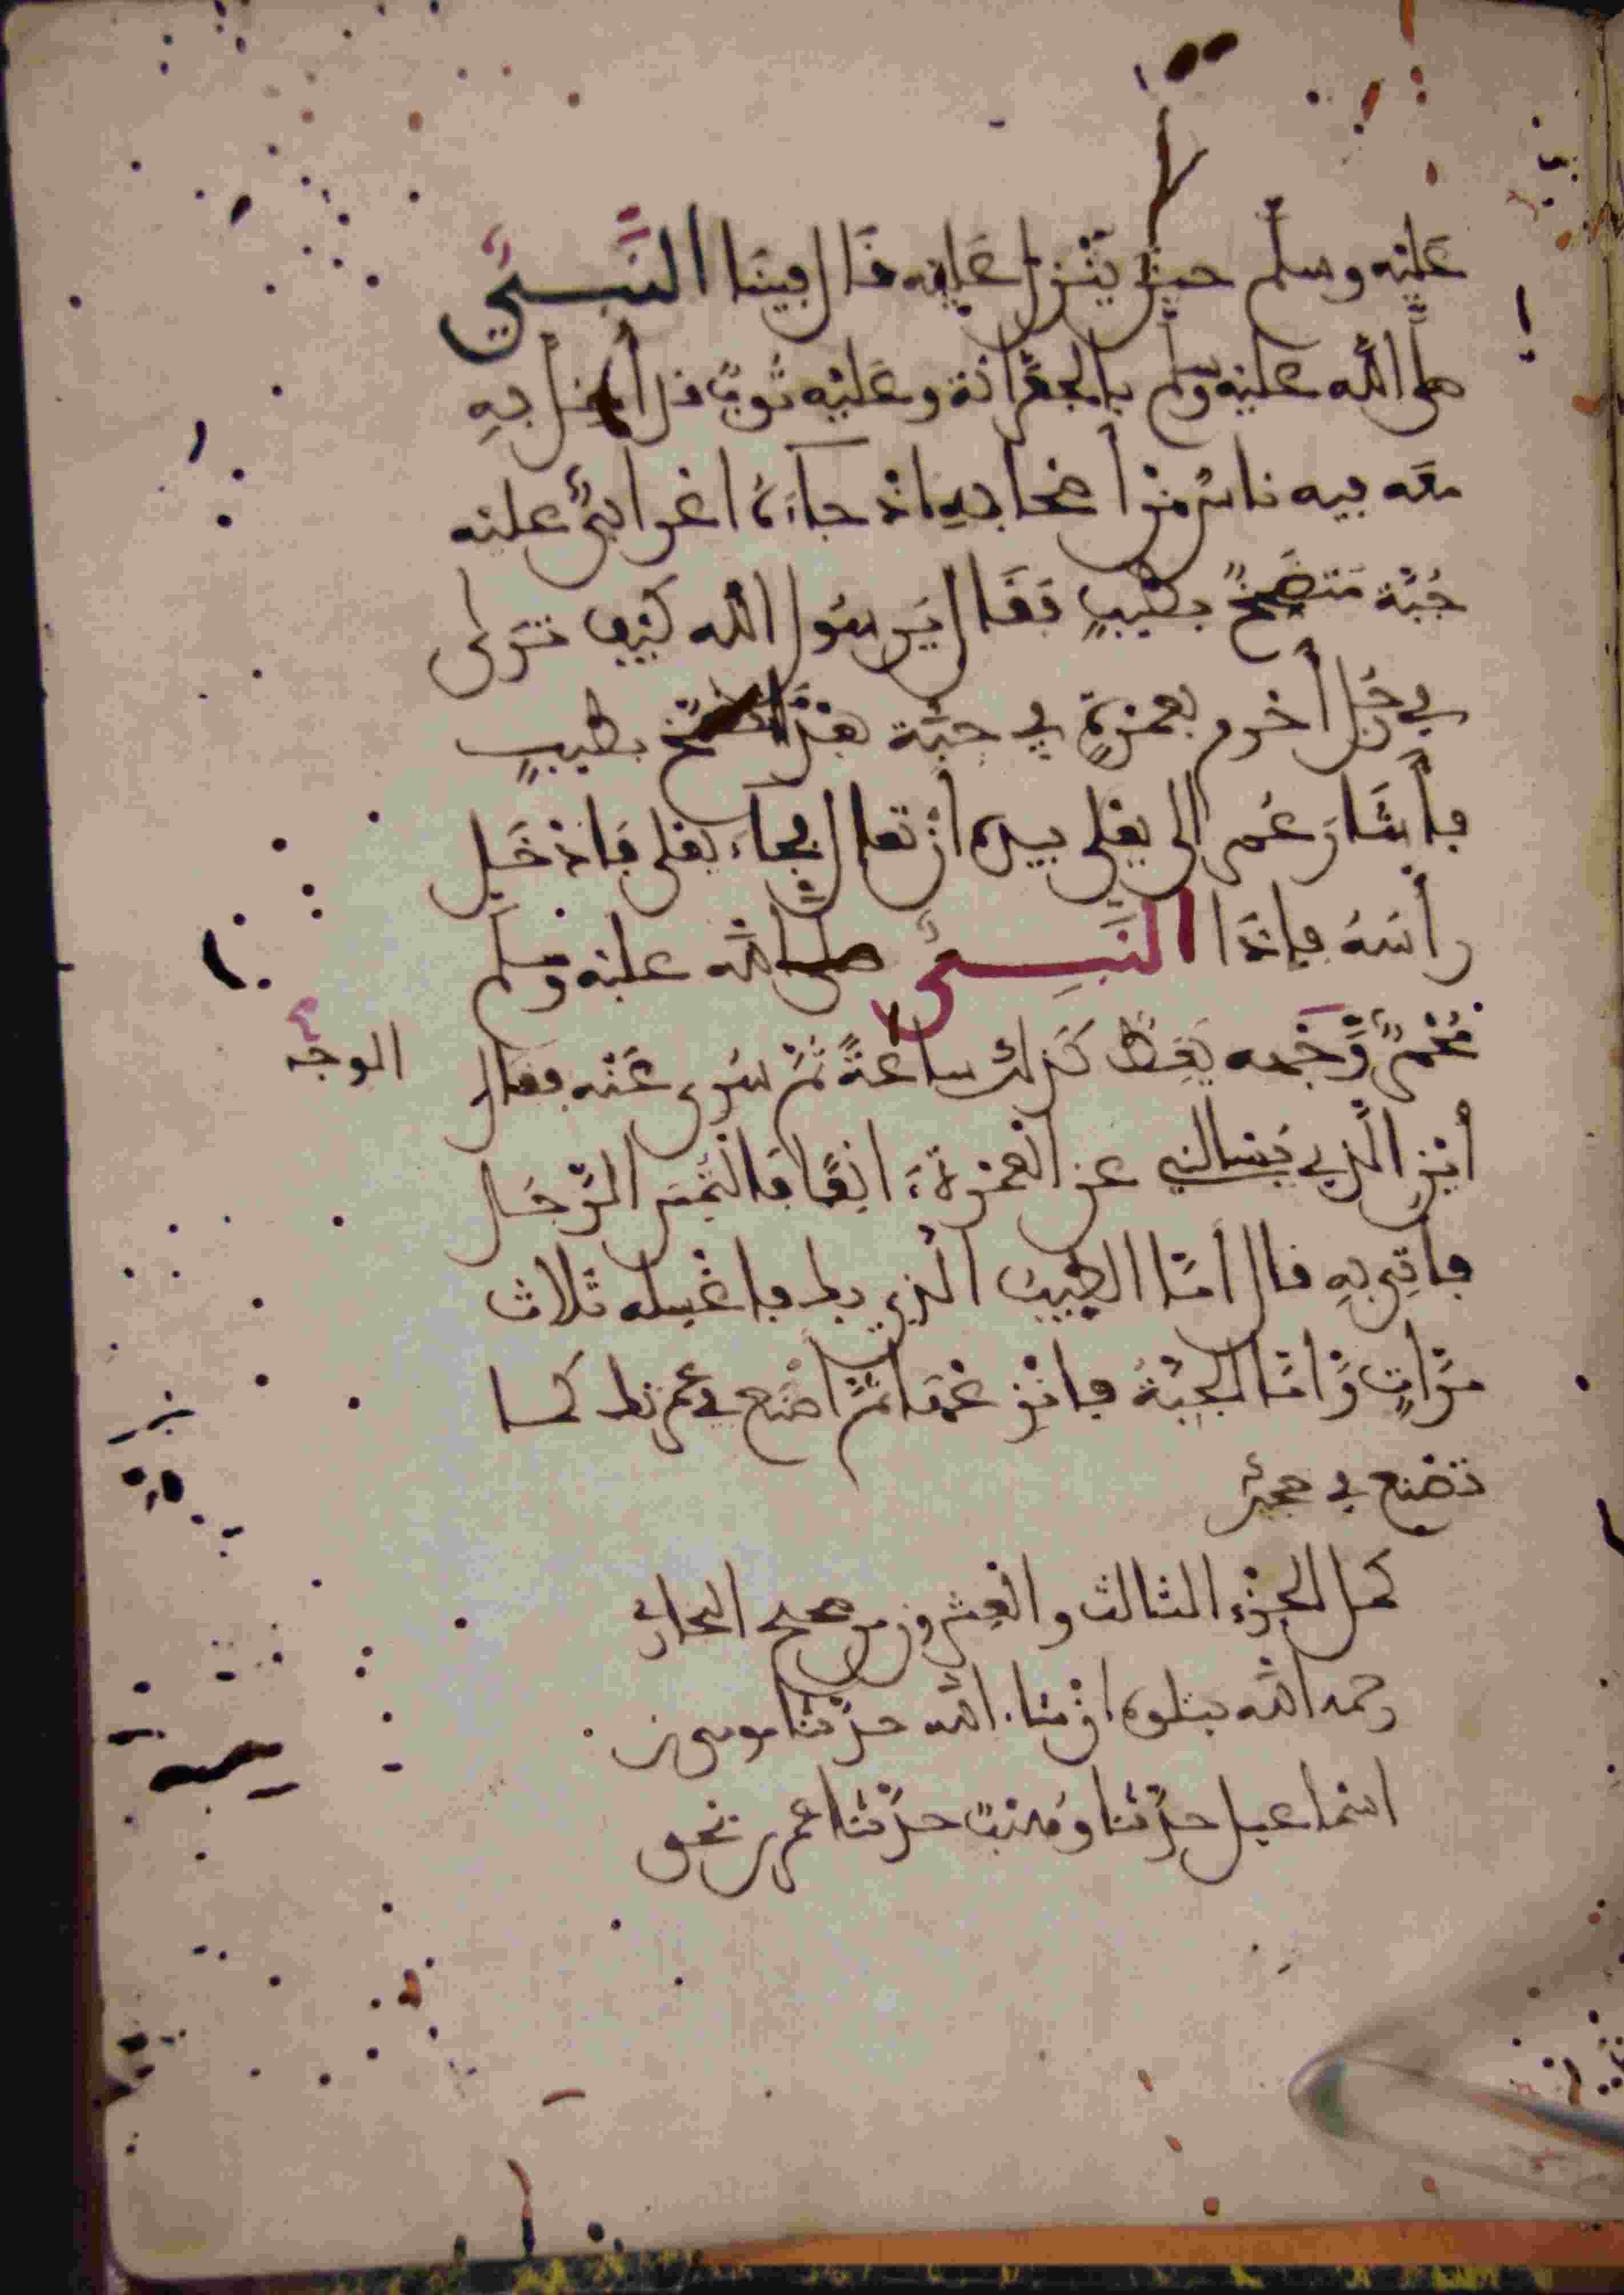 عَلَيْه وسلم حين يُنْزَل عَلَيْه قَال فبينَا النَّبِيُّ
صلى الله عليه وسلم بالجِعْرانة وعَلَيْه ثوبٌ قد أظل به
معه فيه ناس من أصحابه إذ جاءه اعرابيٌّ عليه
جُبّة متضمخٌ بطيبٍ فَقَال يرسول الله كيف ترى
في رجل أحرم بعمرةٍ في جبّة بطيبٍ
فأشار عُمر الى يعلى بيده أن تعال فجاء يعلى فأدخل
رأسَه فإذا النَّبِيُّ صلى الله عليه وسلم
مُحْمَرُّ وَجْهه يَغِطُّ كذلك ساعةً ثم سُرِّي عَنْه فقال
الوجه
أين الذي يسألني عن العمرة ءانِفًا فالتُمِس الرَّجل
فأتي به قال أمّا الطيب الذي بك فاغسله ثلاث
مرّاتٍ وَّأمّا الجبّة فانزعها ثم اصنع في عمرتك كما
تصنع في حجك
كمل الجزء الثالث والعشرون من صحيح البخاري
رحمه الله يتلوه إن شاء الله حدّثنا موسى بن
اسماعيل حدّثنا وُهيب حدّثنا عمرو بن يحيى